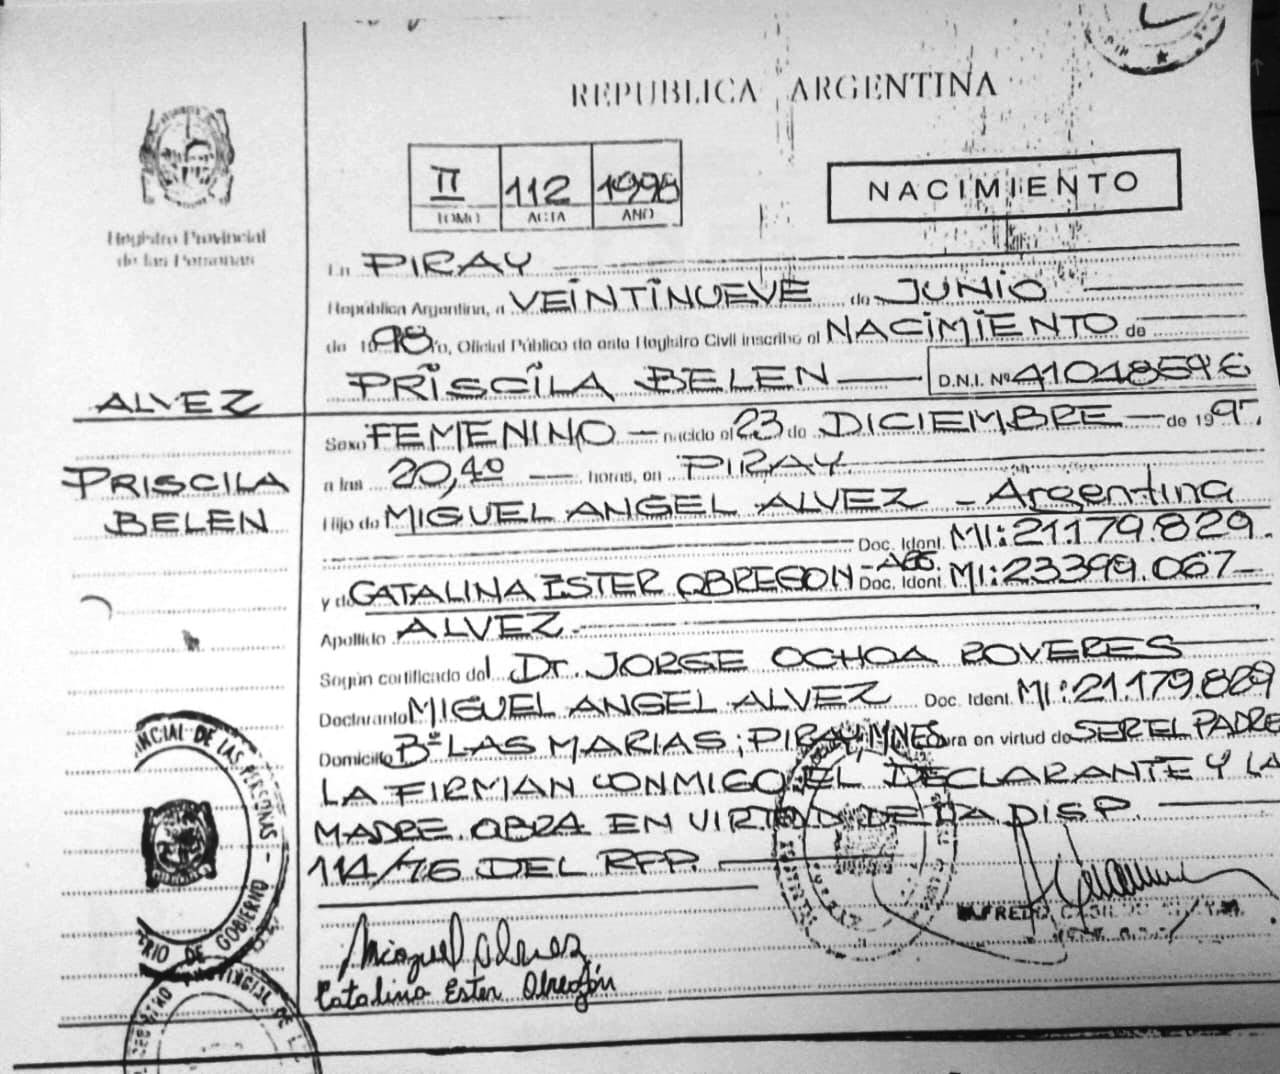 REPUBLICA ARGENTINA
II 112 1998
TOMO ACTA AÑO
NACIMIENTO
Registro Provincial
de las Personas
En PIRAY
República Argentina, a VEINTINUEVE de JUNIO
de 1998 Yo, Oficial Público de este Registro Civil inscribo el NACIMIENTO de
PRISCILA BELEN D.N.I. Nº
ALVEZ
PRISCILA
BELEN
Sexo FEMENINO nacido el 23 de DICIEMBRE de 199
a las 20,40 horas, en PIRAY
Hijo de MIGUEL ANGEL ALVEZ - Argentina
Doc. Ident. MI: 21.179.829.
y de CATALINA ESTER OBREGON - ARG. Doc. Ident. MI: 23399.067
Apellido ALVEZ.
Según certificado del Dr. JORGE OCHOA ROVERES
Declarante MIGUEL ANGEL ALVEZ Doc. Ident. MI: 21.179.829
Domicilio Bº LAS MARIAS; PIRAY, MNES obra en virtud de SER EL PADRE
LA FIRMAN CONMIGO EL DECLARANTE Y LA
MADRE. OBRA EN VIRTUD DE LA DISP.
114/76 DEL RPP.
Miguel Alvez
Catalina Ester Obregón
DE LAS PERSONAS
DE GOBIERNO
PROVINCIAL DE